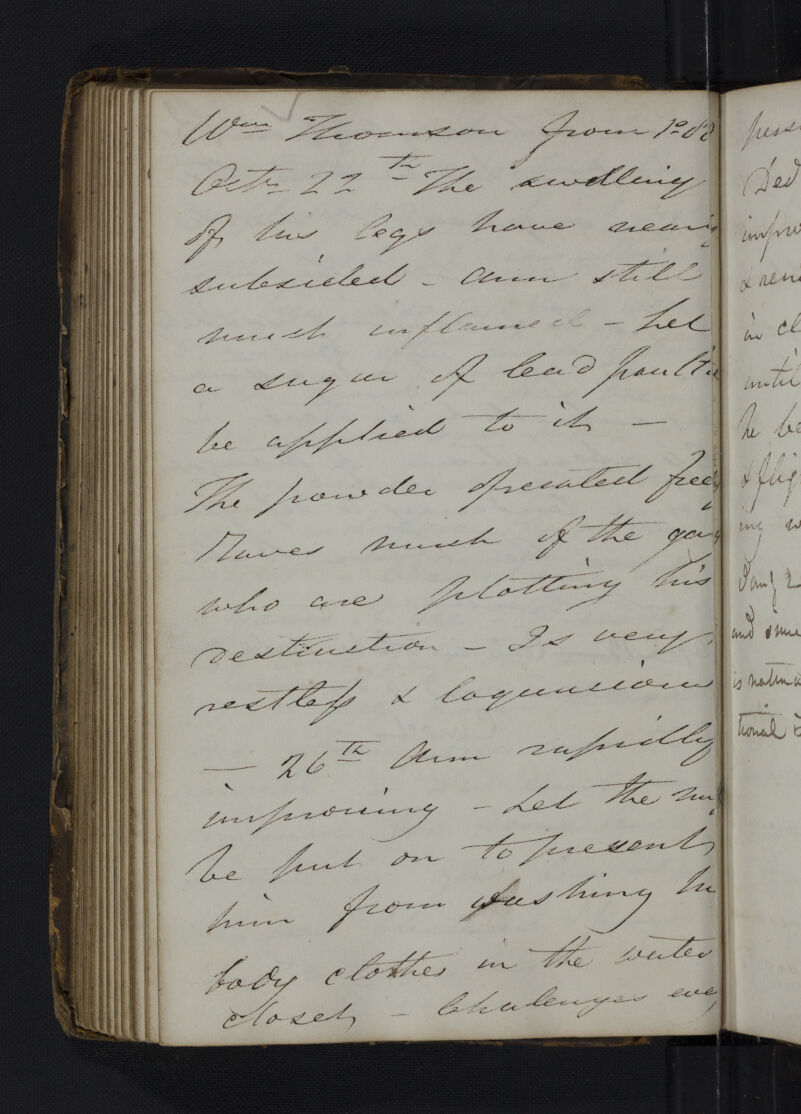 Wm Thomson from 1º
Octr 22th The swelling
of his legs have nearly
subsided - arm still
much inflamed - Let
a sugar of lead poultice
be applied to it -
The powder operated freely
Raves much of the
who are plotting his
destruction - Is very
restless & loquacious
- 26th Arm rapidly
improving - Let the
be put on to prevent
him from pushing his
body clothes in the water
closet - Chalenges every
Ded
in cl
until
he be
ing w
Jany 2
and since
tional &